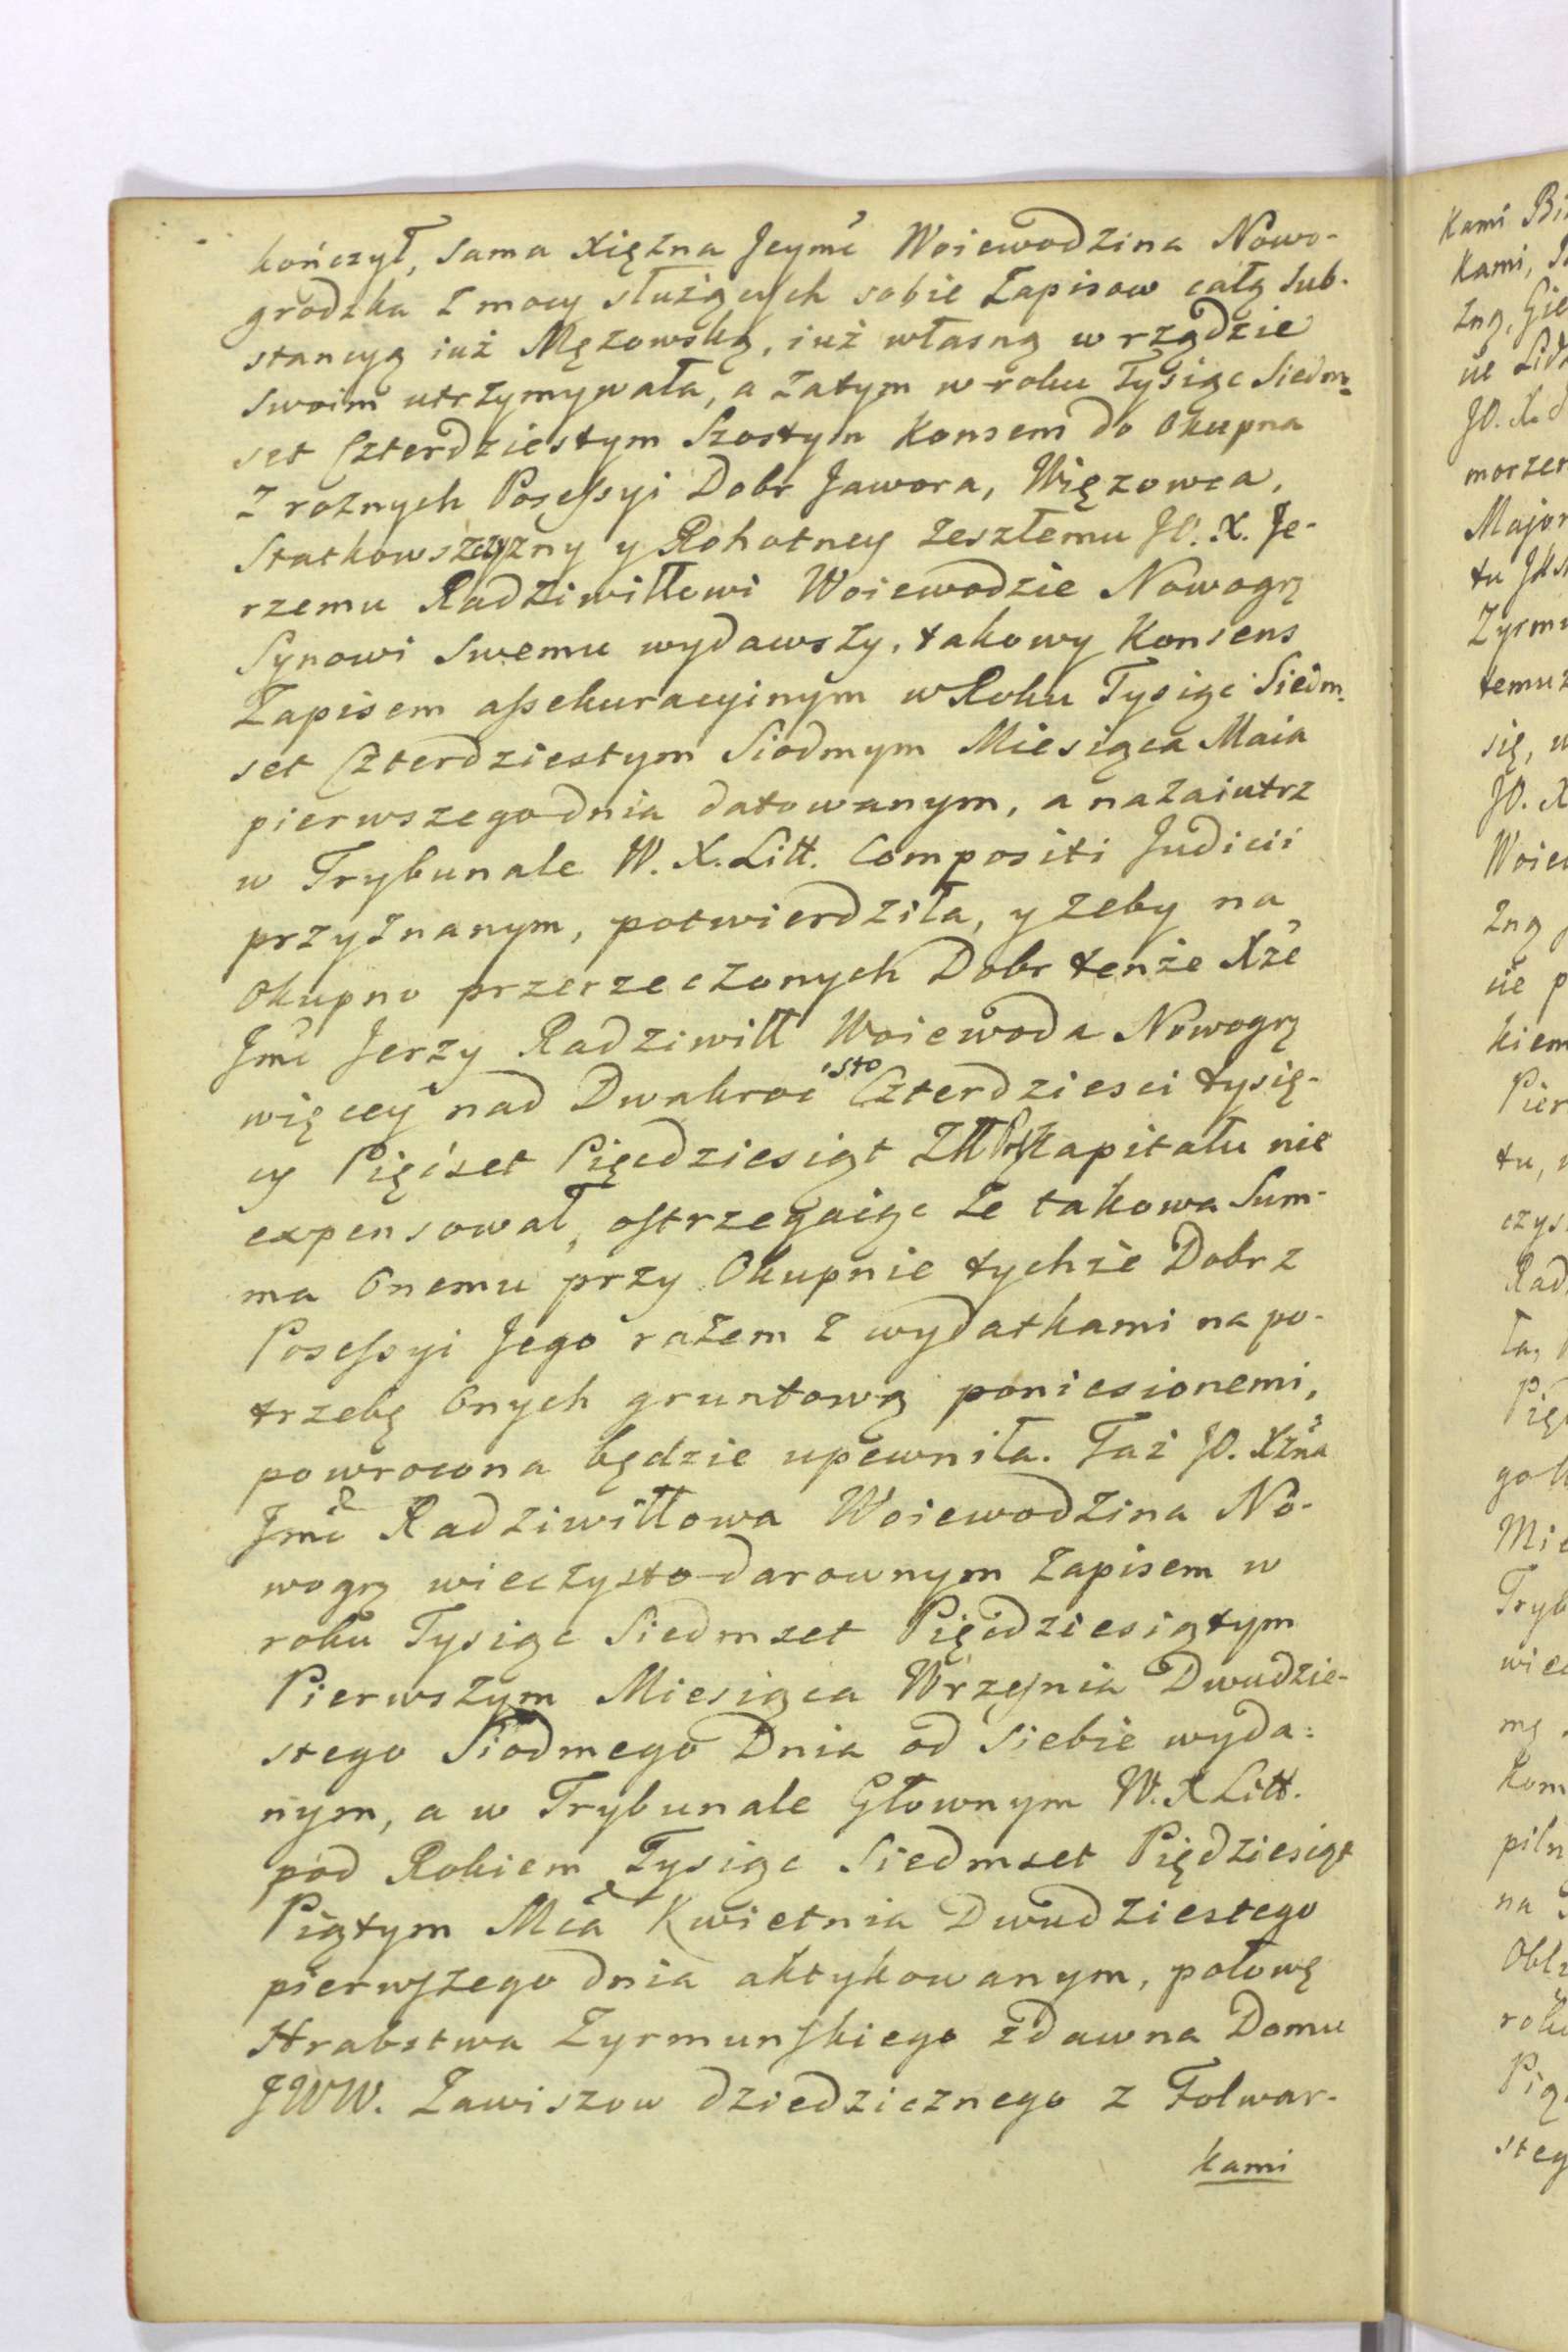 kończył, sama Xiężna Jeymć Woiewodzina Nowo-
grodzka z mocy służących sobie Zapisow całą Sub-
stancyą iuż Mężowską, iuż własną w rządzie
swoim utrzymywała, a zatym w roku Tysiąc Siedm-
set Czterdziestym Szostym Konsens do Okupna
z rożnych Posessyi Dobr Jawora, Więzowca,
Statkowszczyzny y Rohotney zeszłemu JO. X. Je-
rzemu Radziwiłłowi Woiewodzie Nowogrz
Synowi Swemu wydawszy, takowy Konsens
Zapisem assekuracyinym w Roku Tysiąc Siedm-
set Czterdziestym Siodmym Miesiąca Maia
pierwszego dnia datowanym, a nazaiutrz
w Trybunale W. X. Litt. Compositi Judicii
przyznanym, potwierdziła, y zeby na
Okupno przerzeczonych Dobr tenże Xże
Jmć Jerzy Radziwiłł Woiewoda Nowogrz
więcey nad Dwakroć sto Czterdziesci tysię-
cy Pięćset Pięcdziesiąt Złł Kapitału nie
expensował, ostrzegaiąc że takowa Sum-
ma Onemu przy Okupnie tychże Dobr z
Posessyi Jego razem z wydatkami na po-
trzebę Onych gruntową poniesionemi,
powrocona będzie upewniła. Taż JO. Xżna
Jmć Radziwiłłowa Woiewodzina No-
wogrz wieczysto darownym Zapisem w
roku Tysiąc Siedmset Pięcdziesiątym
Pierwszym Miesiąca Wrzesnia Dwudzie-
stego Siodmego Dnia od Siebie wyda:
nym, a w Trybunale Głownym W. X Litt.
pod Rokiem Tysiąc Siedmset Pięcdziesiąt
Piątym Mca Kwietnia Dwudziestego
pierwszego dnia aktykowanym, połowę
Hrabstwa Zyrmunskiego zdawna Domu
JWW. Zawiszow dziedzicznego z Folwar-
kami